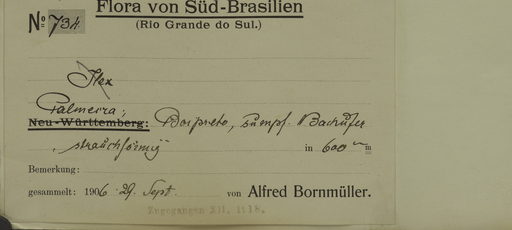 Flora von Süd-Brasilien
No 734
(Rio Grande do Sul.)
Ilex
Palmeira;
Neu-Württemberg: sumpf. Bachufer
strauchförmig in 600 m
Bemerkung:
gesammelt: 1906 29. Sept. von Alfred Bornmüller.
Zugegangen XII. 1918.